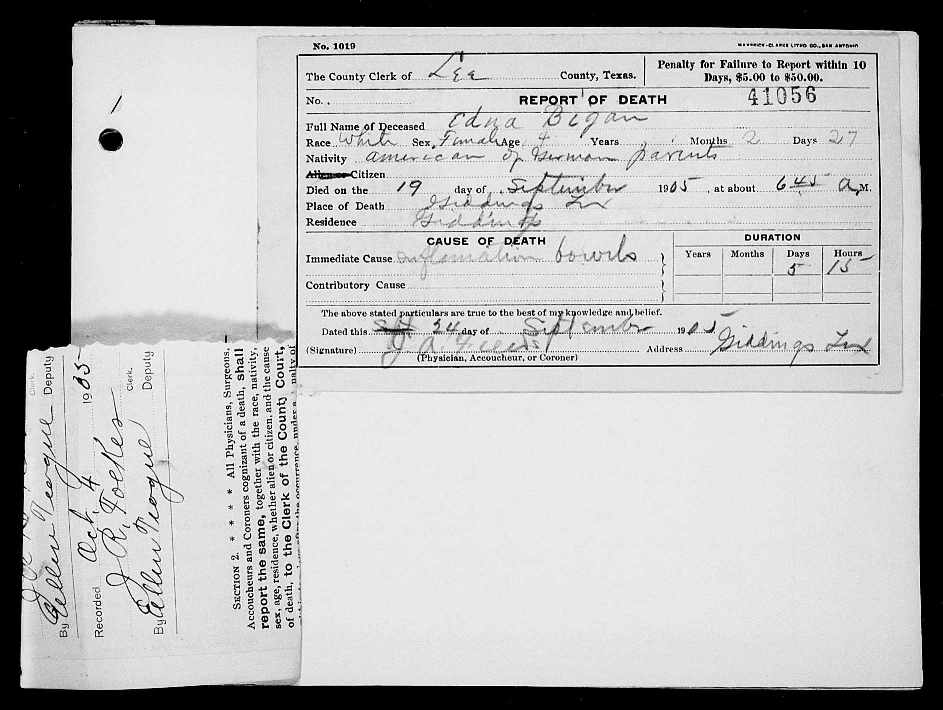 No. 1019
MAVERICK-CLARKE LITHO CO., SAN ANTONIO
The County Clerk of Lee County, Texas.
Penalty for Failure to Report within 10
Days, $5.00 to $50.00.
No. REPORT OF DEATH 41056
Full Name of Deceased Edna Began
Race White Sex, Female Age 4 Years Months 2 Days 27
Nativity american of German parents
Citizen
Died on the 19 day of September 1905, at about 6 45 a, M.
Place of Death Giddings Tex
Residence Giddings
CAUSE OF DEATH DURATION
Years Months Days Hours
Immediate Cause inflamation bowels 5 15
Contributory Cause
The above stated particulars are true to the best of my knowledge and belief.
Dated this 24 day of September 1905
(Signature) J A Fields Address Giddings Tex
(Physician, Accoucheur, or Coroner)
1
Clerk.
By Ellen Teague Deputy
Recorded Oct. 4 1905
J. R. Foekes Clerk.
By Ellen Teague Deputy
SECTION 2. * * * * All Physicians, Surgeons,
Accoucheurs and Coroners cognizant of a death, shall
report the same, together with the race, nativity,
sex, age, residence, whether alien or citizen, and the cause
of death, to the Clerk of the County Court,
the occurrence, under a penalty of